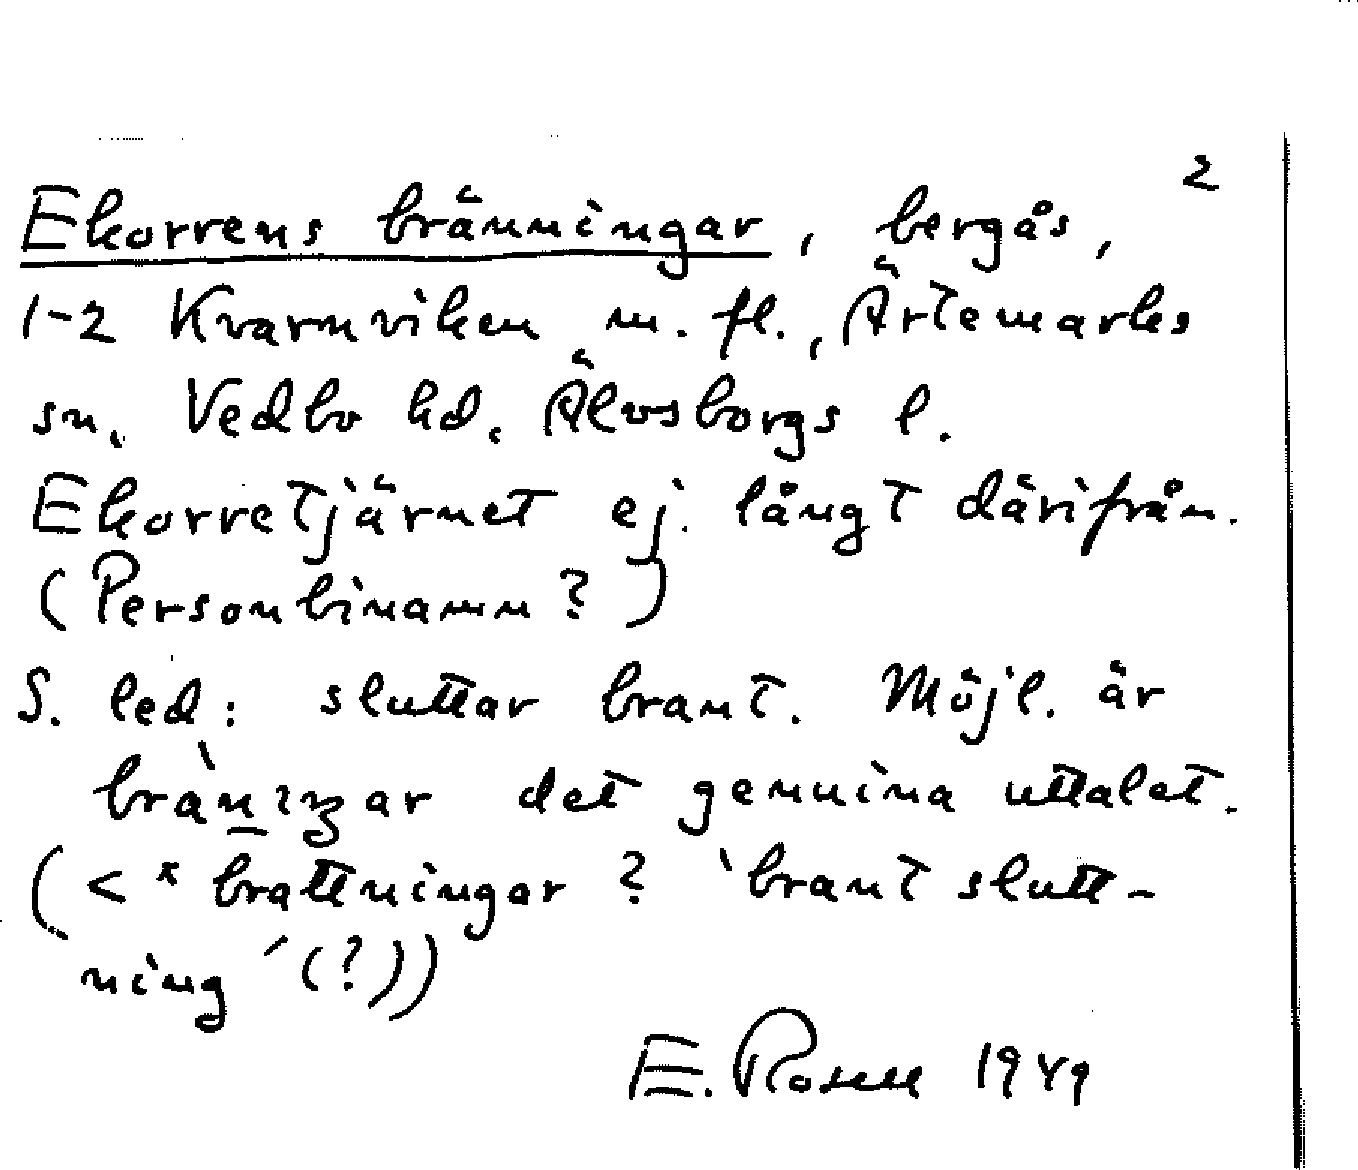 2
Ekorrens bränningar, bergås,
1-2 Kvarnviken m. fl., Ärtemarks
sn, Vedbo hd, Älvsborgs l.
Ekorretjärnet ej långt därifrån.
(Personbinamn?)
S. led: sluttar brant. Möjl. är
det genuina uttalet.
(< * brattningar ? 'brant slutt-
ning' (?))
E. Rosell 1949